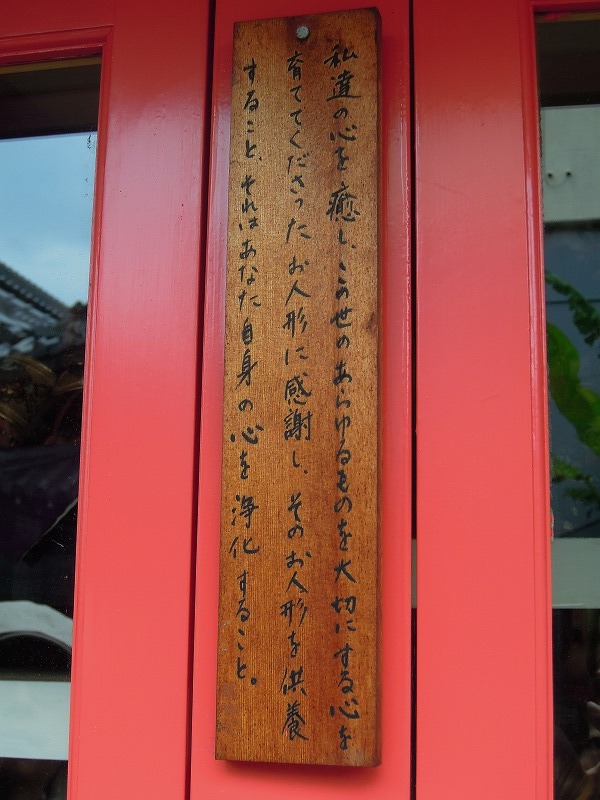 私達の心を癒し、この世のあらゆるものを大切にする心を
育ててくださったお人形に感謝し、そのお人形を供養
すること、それはあなた自身の心を浄化すること。